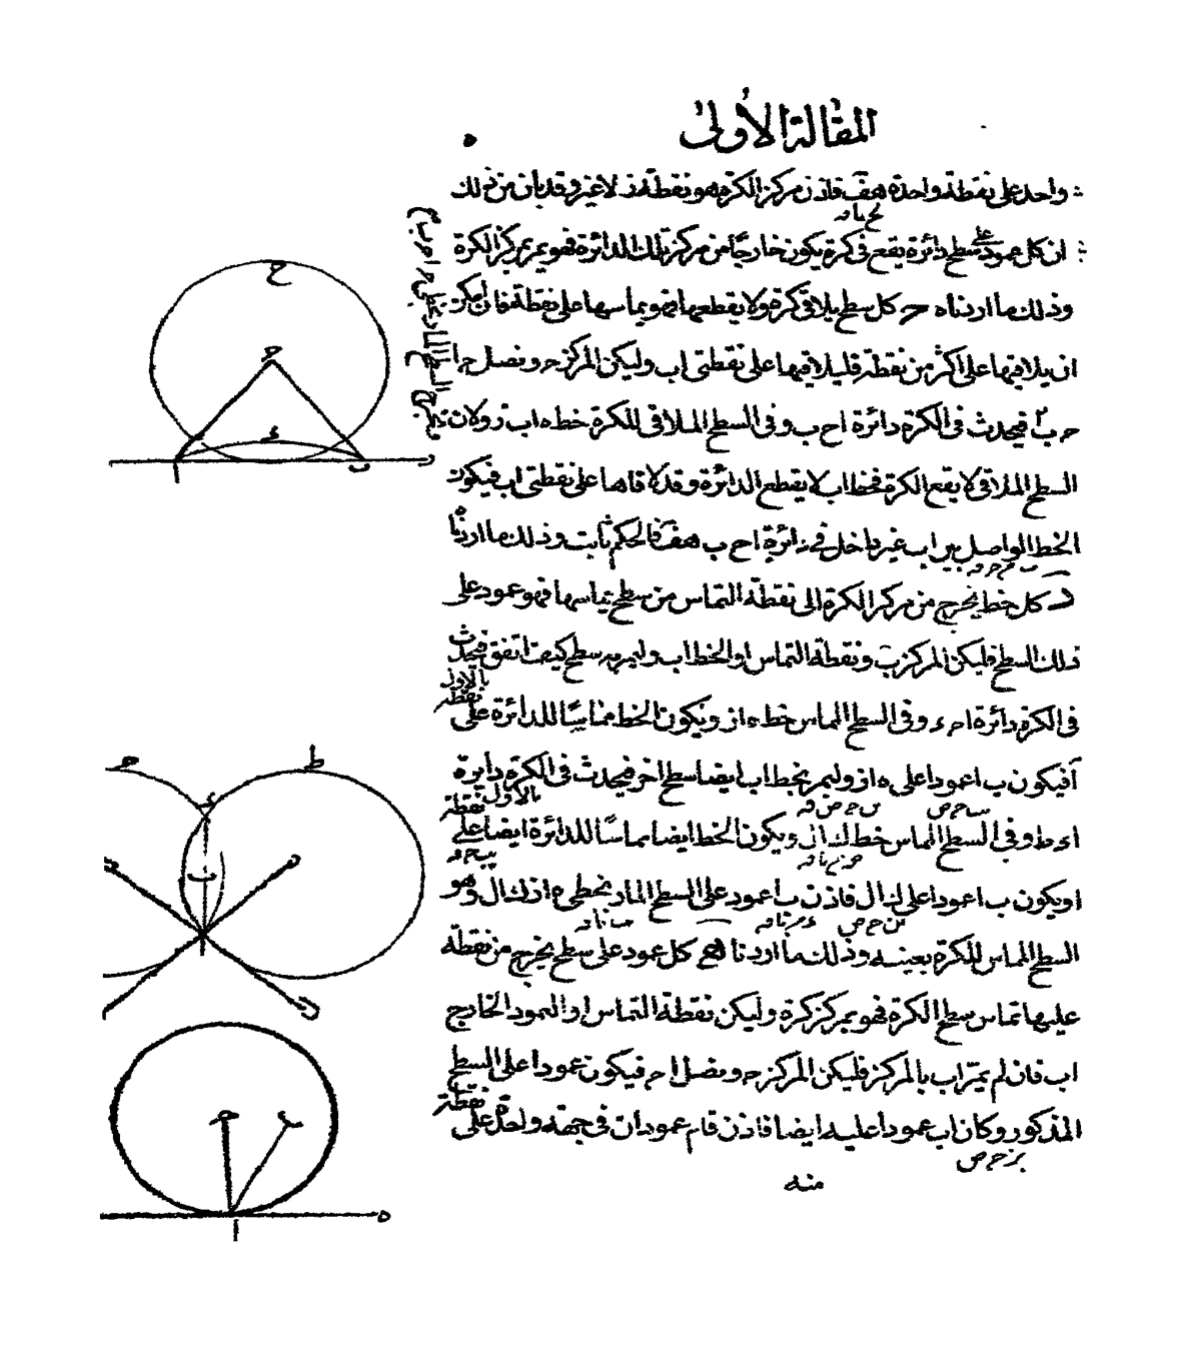 المقالة الأولى
٥
واحد على نقطة واحدة هف فاذن مركز الكرة هو نقطة لا غير وقد بان من ذلك
ان كل عمود على سطح دائرة يقع فى كرة يكون خارجًا من مركز تلك الدائرة فهو يمر بمركز الكرة
وذلك ما اردناه ح كل سطح يلاقى كرة ولا يقطعها فهو يماسها على نقطة فان امكن
ان يلاقيها على اكثر من نقطة فليلاقيها على نقطتى اب وليكن المركز ح ونصل ح ا
ح ب فيحدث فى الكرة دائرة ا ح ب وفى السطح الملاقى للكرة خط ه اب ز ولان
السطح الملاقى لا يقع الكرة فخط اب لا يقطع الدائرة وقد لاقاها على نقطتى اب فيكون
الخط الواصل بين اب غير داخل فى دائرة ا ح ب هف فالحكم ثابت وذلك ما اردنا
د كل خط يخرج من مركز الكرة الى نقطة التماس من سطح يماسها فهو عمود على
ذلك السطح فليكن المركز ب ونقطة التماس ا والخط اب وليمر به سطح كيف اتفق فيحدث
فى الكرة دائرة ا ح ء وفى السطح المماس خط ه ا ز ويكون الخط مماسًا للدائرة على
نقطة
ا فيكون ب ا عمودا على ه ا ز وليمر بخط اب ايضا سطح اخر فيحدث فى الكرة دايرة
بالاول
ا ء ط وفى السطح المماس خط ك ا ل ويكون الخط ايضا مماسًا للدائرة ايضا على
نقطة
ا ويكون ب ا عمودا على ك ا ل فاذن ب ا عمود على السطح الماد بخطى ه ا ز ك ا ل وهو
السطح المماس للكرة بعينه وذلك ما اردنا ه كل عمود على سطح يخرج من نقطة
عليها تماس سطح الكرة فهو يمر بمركز كرة وليكن نقطة التماس ا والعمود الخارج
اب فان لم يمر اب بالمركز فليكن المركز ح ونصل ا ح فيكون عمودا على السطح
المذكور وكان اب عمودا عليه ايضا فاذن قام عمودان فى جهته واحدة على
نقطة
منه